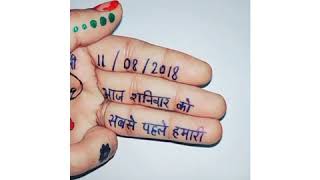 11/08/2018
आज शनिवार को
सबसे पहले हमारी